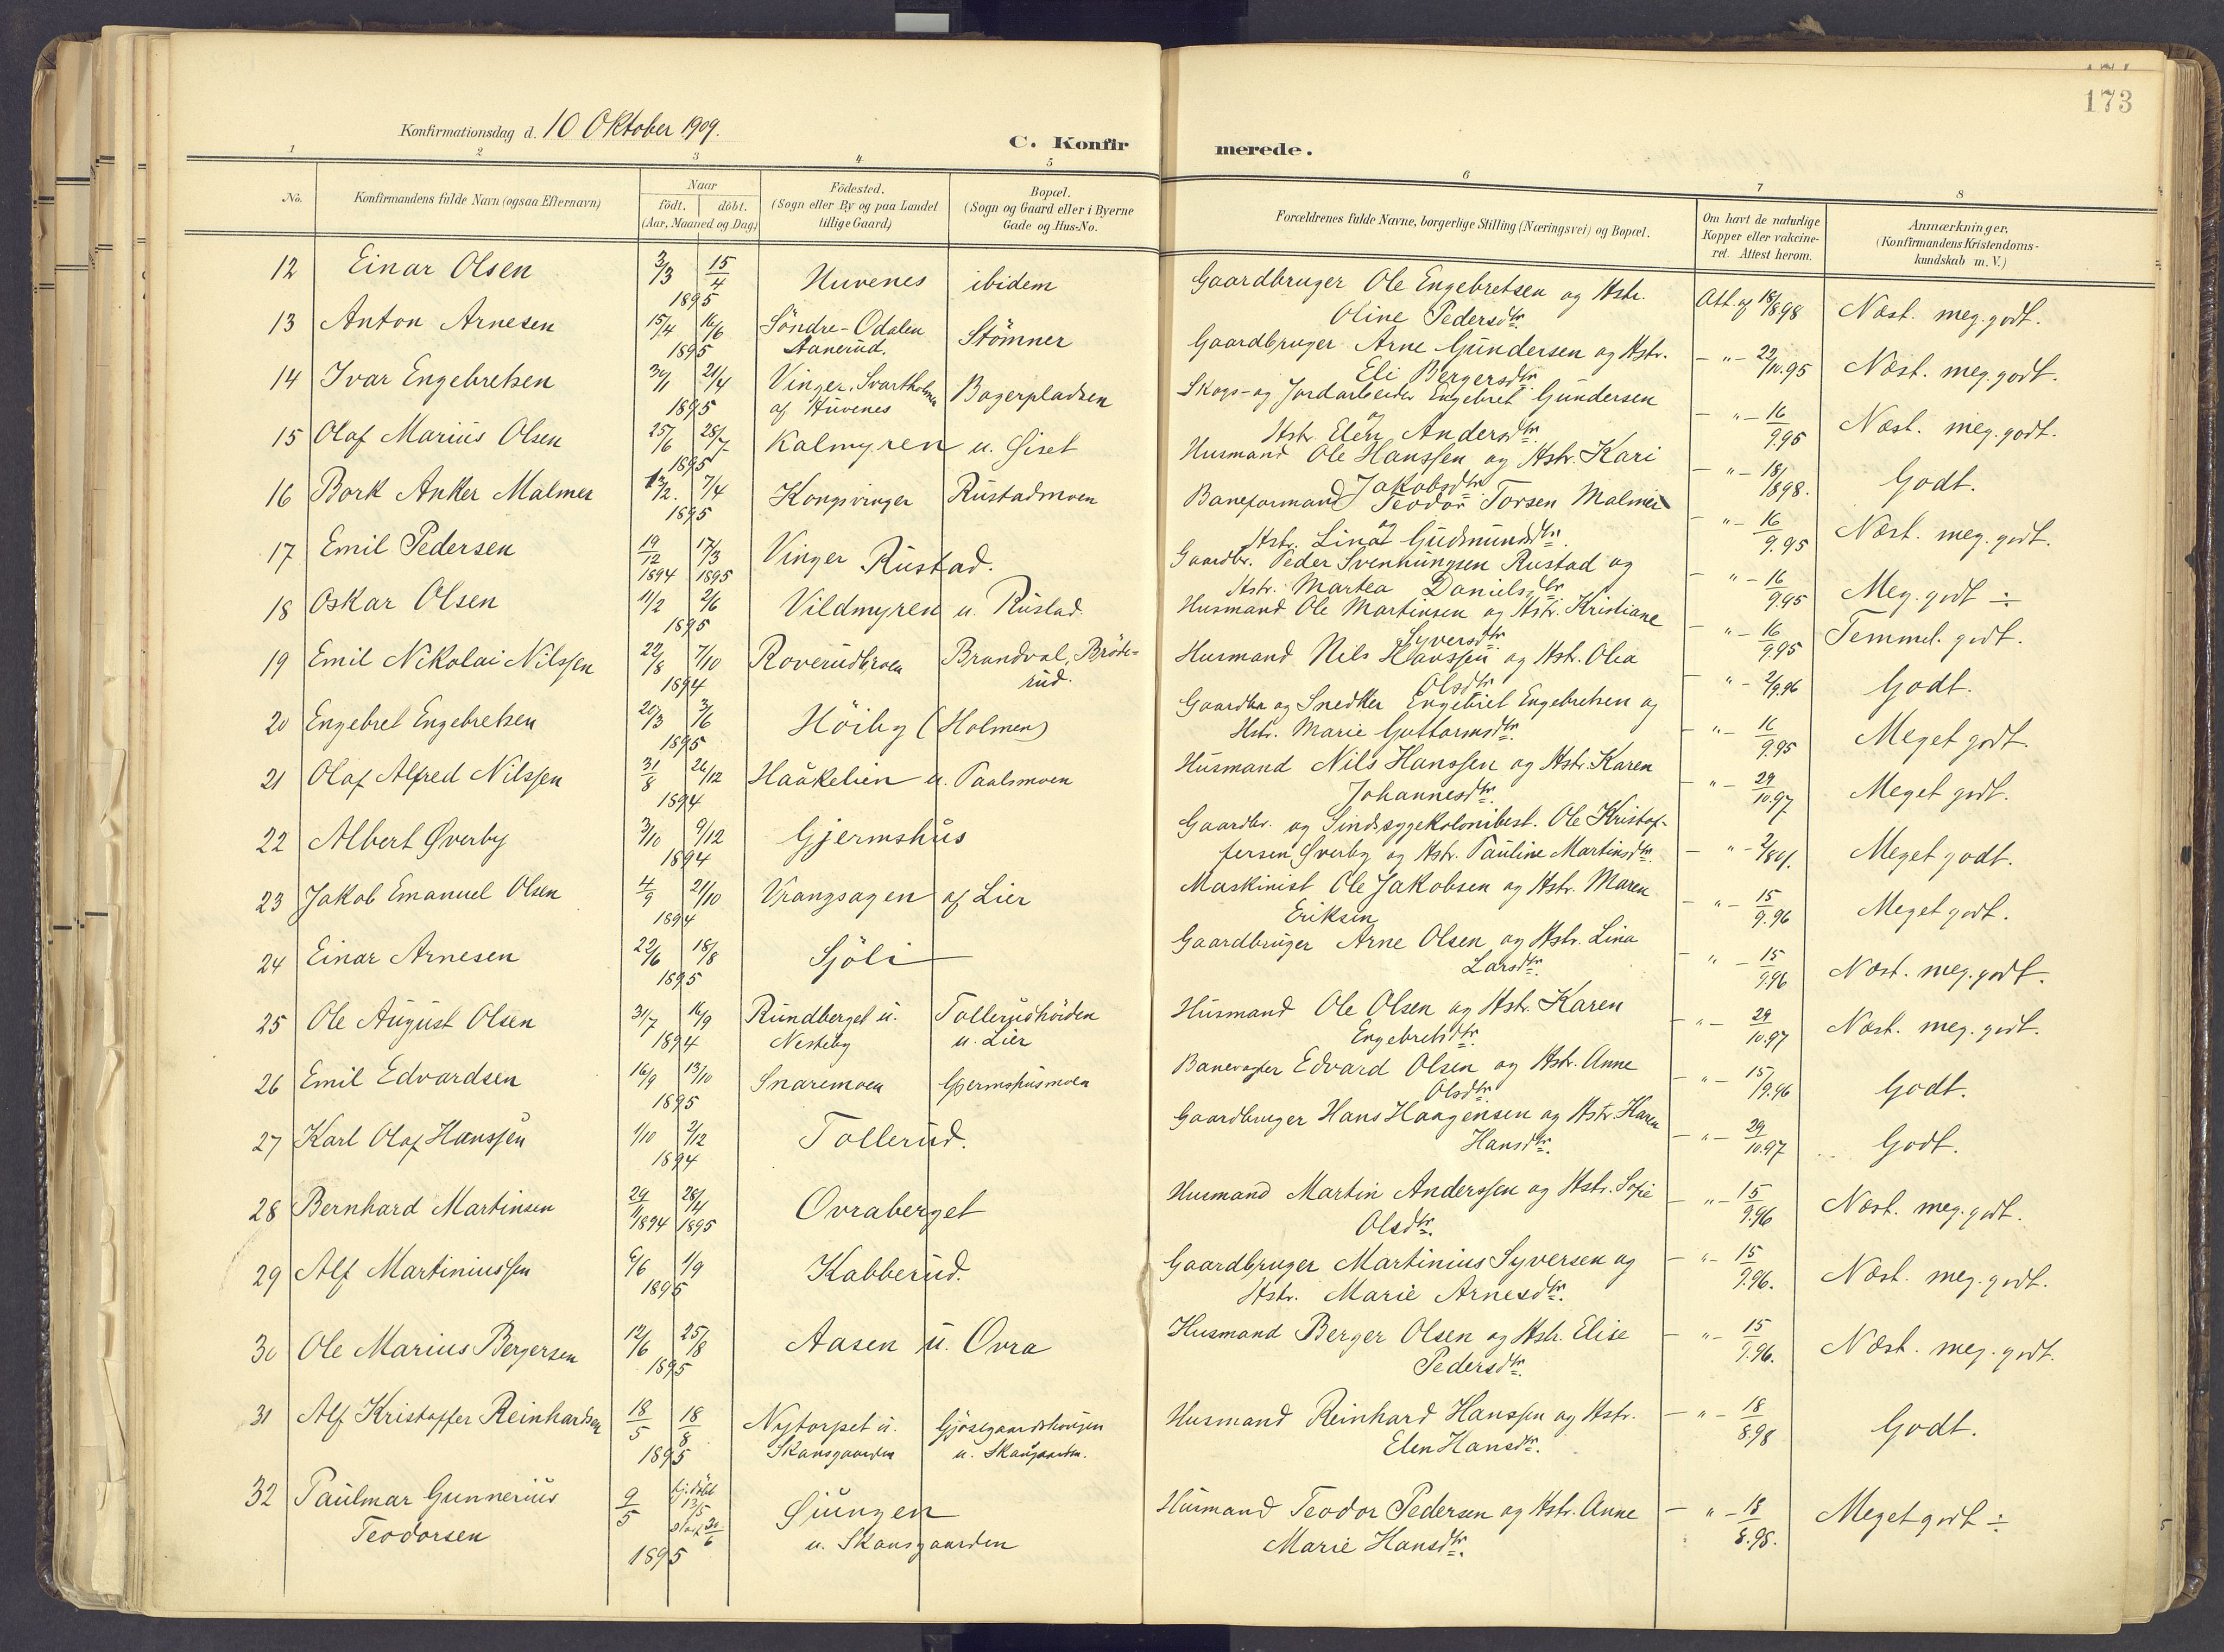 173
Konfirmationsdag d. 10 Oktober 1909.
C. Konfirmerede.
1 2 3 4 5 6 7 8
No.
Konfirmandens fulde Navn (ogsaa Efternavn)
Naar
födt. döbt.
(Aar, Maaned og Dag)
Födested.
(Sogn eller By og paa Landet
tillige Gaard)
Bopæl.
(Sogn og Gaard eller i Byerne
Gade og Hus-No.
Forældrenes fulde Navne, borgerlige Stilling (Næringsvei) og Bopæl.
Om havt de naturlige
Kopper eller vakcine-
ret. Attest herom.
Anmærkninger.
(Konfirmandens Kristendoms-
kundskab m. V.)
12 Einar Olsen 3/3 15/4 Huvenes ibidem Gaardbruger Ole Engebretsen og Hstr. Att. af 18/8 98 Næst. meg. godt.
1895 Oline Pedersdtr.
13 Anton Arnesen 15/4 16/6 Söndre-Odalen Stömner Gaardbruger Arne Gundersen og Hstr. - " - 22/10.95 Næst. meg. godt.
1895 Aanerud. Eli Bergersdtr.
14 Ivar Engebretsen 30/1 21/4 Vinger, Svartholmen Bagerpladsen Skogs- og Jordarbeider Engebret Gundersen - " - 16/9.95 Næst. meg. godt.
1895 af Huvenes og Hstr. Elen Andersdtr.
15 Olaf Marius Olsen 25/6 28/7 Kalmyren u. Siset Husmand Ole Hanssen og Hstr. Kari - " - 18/1898. Godt.
1895 Jakobsdtr.
16 Bork Anker Malmer 13/2. 7/4 Kongsvinger Rustadmoen Baneformand Teodor Torsen Malmer - " - 16/9.95 Næst. meg. godt.
1895 og Hstr. Lina Gudmundsdtr.
17 Emil Pedersen 19/12 17/3 Vinger Rustad. Gaardbr. Peder Svenhungsen Rustad og - " - 16/9.95 Meg. godt ÷
1894 1895 Hstr. Martea Danielsdtr.
18 Oskar Olsen 11/2 2/6 Vildmyren u. Rustad. Husmand Ole Martinsen og Hstr. Kristiane - " - 16/9.95 Temmel. godt.
1895 Syversdtr.
19 Emil Nikolai Nilssen 22/8 7/10 Roverudbroen Brandval, Bröde- Husmand Nils Hanssen og Hstr. Olea - " - 2/9.96 Godt.
1894 rud. Olsdtr.
20 Engebret Engebretsen 20/3 3/6 Höiby (Holmen) Gaardbr og Snedker Engebret Engebretsen og - " - 16/9.95 Meget godt.
1895 Hstr. Marie Guttormsdtr.
21 Olaf Alfred Nilssen 31/8 26/12 Haakelien u. Paalsmoen Husmand Nils Hanssen og Hstr. Karen - " - 29/10.97 Meget godt.
1894 Johannesdtr.
22 Albert Øverby 3/10 9/12 Gjermshus Gaardbr. og Sindssygekolonibest. Ole Kristof- - " - Meget godt.
1894 fersen Øverby og Hstr. Pauline Martinsdtr.
23 Jakob Emanuel Olsen 4/9 21/10 Vrangsagen af Lier Maskinist Ole Jakobsen og Hstr. Maren - " - 15/9.96 Meget godt.
1894 Eriksen
24 Einar Arnesen 22/6 18/8 Sjöli Gaardbruger Arne Olsen og Hstr. Lina - " - 15/9.96 Næst. meg. godt.
1895 Larsdtr.
25 Ole August Olsen 31/7 16/9 Rundberget u. Tollerudhöiden Husmand Ole Olsen og Hstr. Karen - " - 29/10.97 Næst. meg. godt.
1894 Nesteby u. Lier Engebretsdtr.
26 Emil Edvardsen 16/9 13/10 Snaremoen Gjermshusmoen Banevogter Edvard Olsen og Hstr. Anne - " - 15/9.96 Godt.
1895 Olsdtr.
27 Karl Olaf Hanssen 1/10 2/12 Tollerud. Gaardbruger Hans Haagensen og Hstr. Karen - " - 29/10.97 Godt.
1894 Hansdtr.
28 Bernhard Martinsen 29/11 28/4 Ovraberget Husmand Martin Anderssen og Hstr. Sofie - " - 15/9.96 Næst. meg. godt.
1894 1895 Olsdtr.
29 Alf Martiniussen 6/6 1/9 Kabberud. Gaardbruger Martinius Syversen og - " - 15/9.96. Næst. meg. godt.
1895 Hstr. Marie Arnesdtr.
30 Ole Marius Bergersen 12/6 25/8 Aasen u. Ovra Husmand Berger Olsen og Hstr. Elise - " - 15/9.96. Næst. meg. godt.
1895 Pedersdtr.
31 Alf Kristoffer Reinhardsen 18/5 18/8 Nytorpet u. Husmand Reinhard Hanssen og Hstr. - " - 18/8.98 Godt.
1895 Skansgaarden u. Skansgaarden. Elen Hansdtr.
32 Paulmar Gunnerius 9/5 hj. döbt 13/5 Øiungen Husmand Teodor Pedersen og Hstr. Anne - " - 18/8.98. Meget godt ÷
Teodorsen stadf. 30/6 u. Skansgaarden Marie Hansdtr.
1895